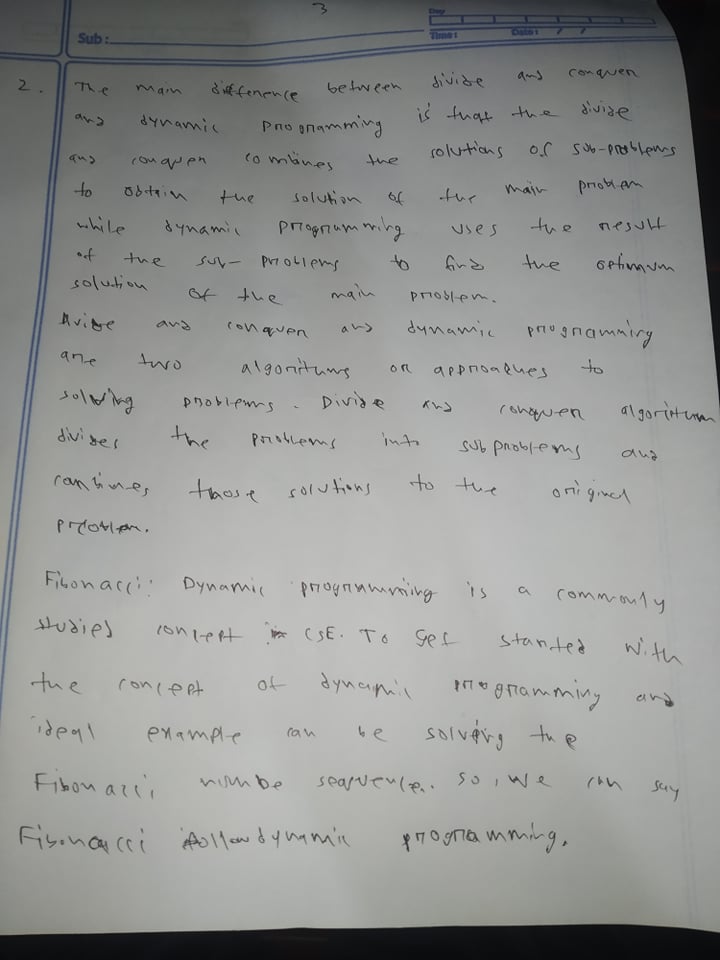 3
Day
Sub :
Time : Date : / /
2. The main difference between divide and conquer
and dynamic programming is that the divide
and conquer combines the solutions of sub-problems
to obtain the solution of the main problem
while dynamic programming uses the result
of the sub-problems to find the optimum
solution of the main problem.
Divide and conquer and dynamic programming
are two algorithms or approaches to
solving problems. Divide and conquer algorithm
divides the problems into subproblems and
combines those solutions to the original
problem.
Fibonacci: Dynamic programming is a commonly
studied concept in CSE. To get started with
the concept of dynamic programming and
ideal example can be solving the
Fibonacci numbe sequence. so, we can say
Fibonacci follow dynamic programming.